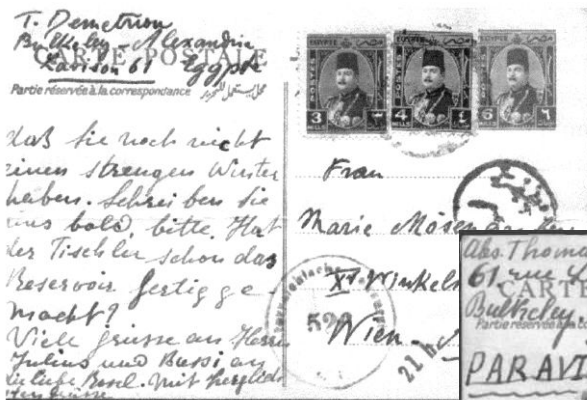 T. Demetriou
Bulkeley - Alexandria
Lavison 61 Egypte
CARTE POSTALE
Partie réservée à la correspondance
daß Sie noch nicht
einen strengen Winter
haben. Schreiben Sie
uns bald, bitte. Hat
der Tischler schon das
Reservoir fertig ge-
macht?
Viele grüsse an Herrn
Julius und Bussi an
die liebe Resel. Mit herzlich
sten Grüssen
EGYPTE
3
MILLS
٣
EGYPTE
4
MILLS
٤
EGYPTE
6
٦
Frau
Marie
XV Winkels
Wien
529
21
Abs. Thoma
61 rue
CARTE
Bulkeley
Partie réservée à la co
PAR AVI